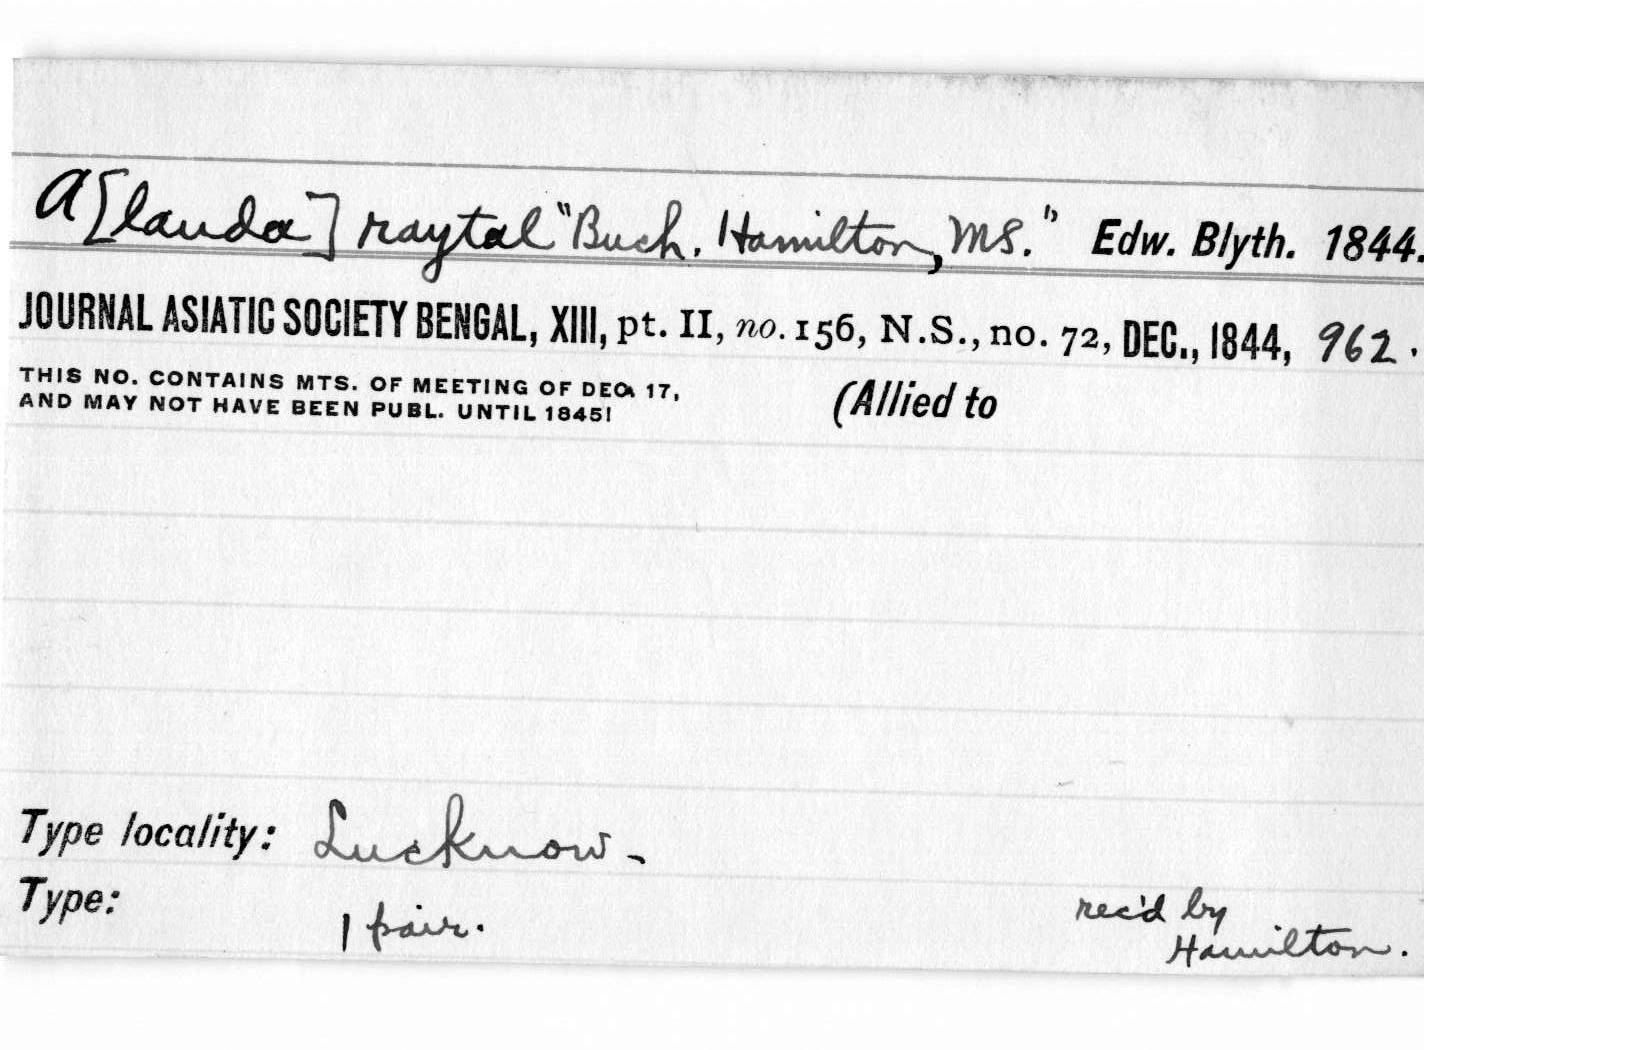 A[lauda] raytal "Buch. Hamilton, MS." Edw. Blyth. 1844.
JOURNAL ASIATIC SOCIETY BENGAL, XIII, pt. II, no. 156, N.S., no. 72, DEC., 1844, 962.
THIS NO. CONTAINS MTS. OF MEETING OF DEC. 17,
AND MAY NOT HAVE BEEN PUBL. UNTIL 1845!
(Allied to
Type locality: Lucknow -
Type: 1 pair.
rec'd by
Hamilton.